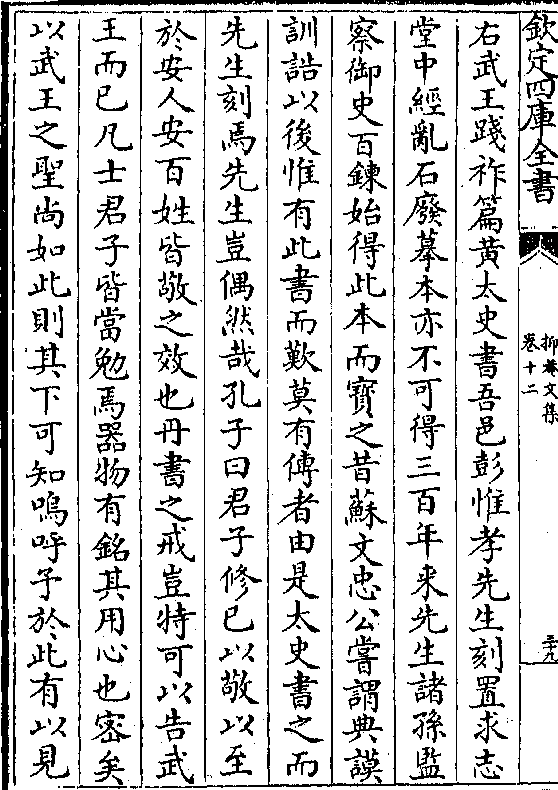 欽定四庫全書
抑菴文集
卷十二
三十九
右武王踐祚篇黄太史書吾邑彭惟孝先生刻置求志
堂中經亂石廢摹本亦不可得三百年来先生諸孫監
察御史百鍊始得此本而寶之昔蘇文忠公嘗謂典謨
訓誥以後惟有此書而歎莫有傳者由是太史書之而
先生刻焉先生豈偶然哉孔子曰君子修已以敬以至
於安人安百姓皆敬之效也丹書之戒豈特可以告武
王而已凡士君子皆當勉焉器物有銘其用心也密矣
以武王之聖尚如此則其下可知嗚呼予於此有以見